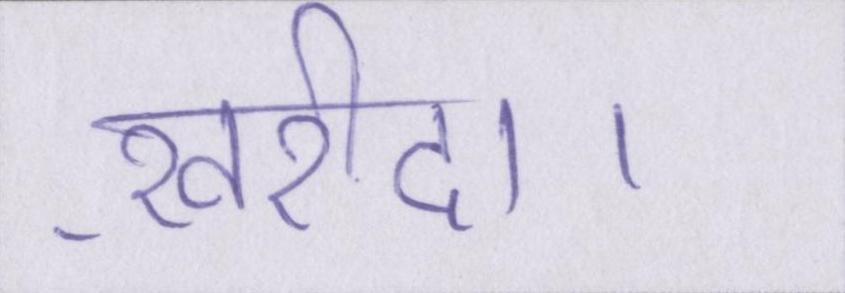 खरीदा।